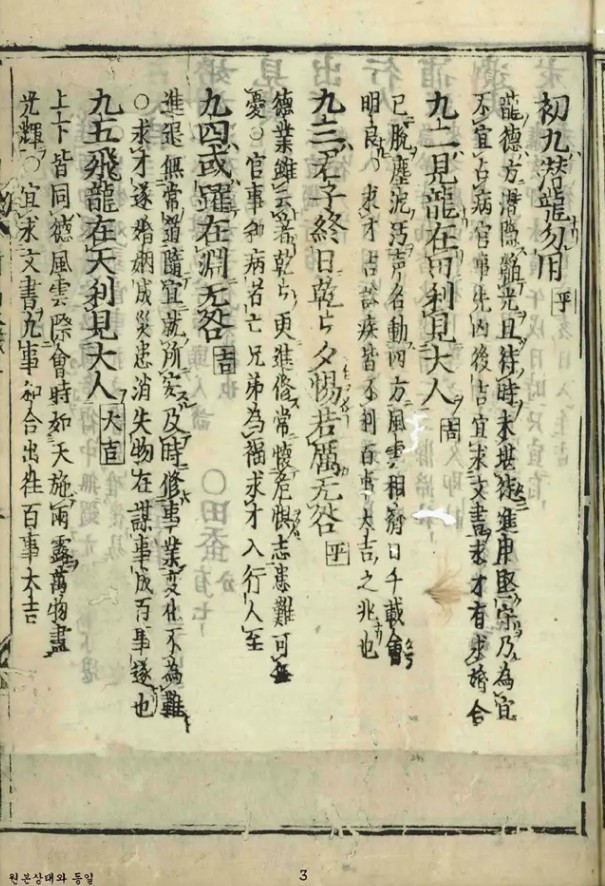 初九潜龍勿用 平
龍德方潜際難光且待時未堪德進用堅守乃為宜
不宜占病官事先凶後吉宜求文書求才有求婚合
九二見龍在田利見大人 吉
已脫塵泥污声名動四方風雲相際日千載會
明良○求才占訟疾皆不利百事大吉之兆也
九三君子終日乾乾夕惕若厲无咎 平
德業雖云著乾乾更進修常懷危惧志患難可無
憂○官事和病者亡兄弟為禍求才入行人至
九四或躍在淵无咎 吉
進退無常道隨宜就所安及時修事業変化不為難
○求才遂婚姻成災患消失物在謀事成百事遂也
九五飛龍在天利見大人 大吉
上下皆同德風雲際會時如天施雨露萬物盡
光輝○宜求文書九事和合出往百事大吉
원본상태와 동일
3